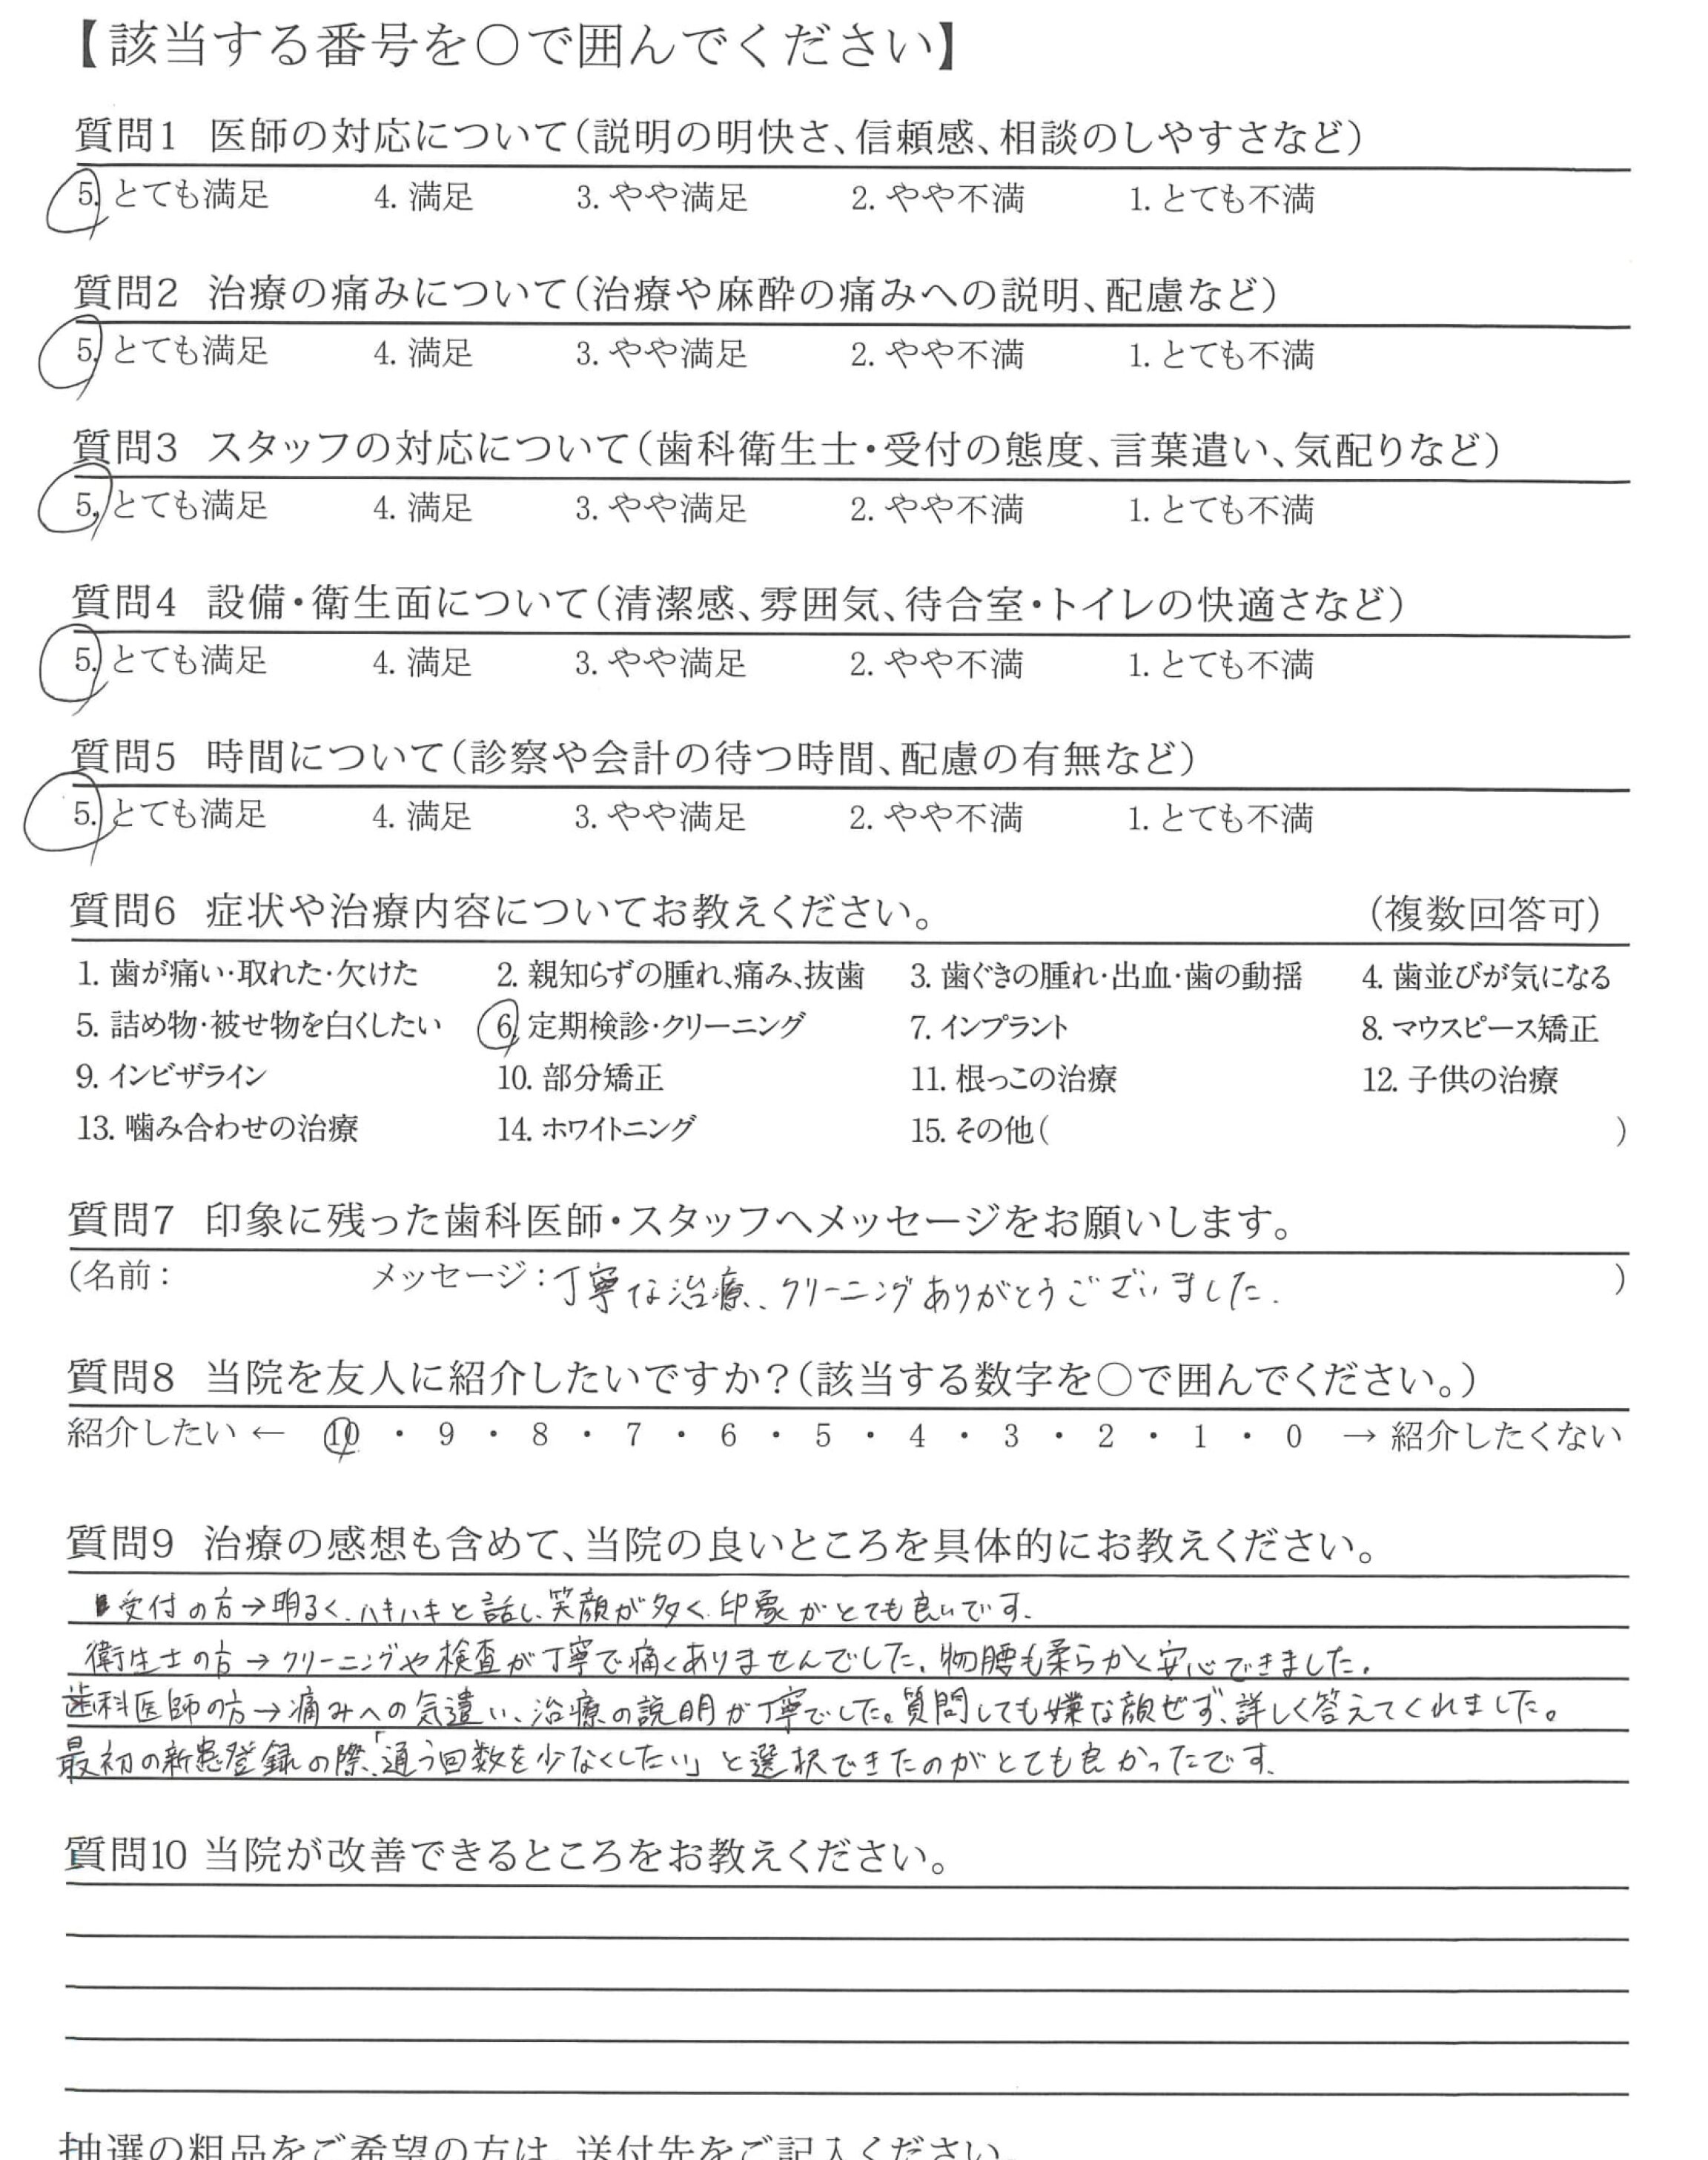 【該当する番号を○で囲んでください】
質問1 医師の対応について(説明の明快さ、信頼感、相談のしやすさなど)
5. とても満足 4. 満足 3. やや満足 2. やや不満 1. とても不満
質問2 治療の痛みについて(治療や麻酔の痛みへの説明、配慮など)
5. とても満足 4. 満足 3. やや満足 2. やや不満 1. とても不満
質問3 スタッフの対応について(歯科衛生士・受付の態度、言葉遣い、気配りなど)
5. とても満足 4. 満足 3. やや満足 2. やや不満 1. とても不満
質問4 設備・衛生面について(清潔感、雰囲気、待合室・トイレの快適さなど)
5. とても満足 4. 満足 3. やや満足 2. やや不満 1. とても不満
質問5 時間について(診察や会計の待つ時間、配慮の有無など)
5. とても満足 4. 満足 3. やや満足 2. やや不満 1. とても不満
質問6 症状や治療内容についてお教えください。 (複数回答可)
1. 歯が痛い・取れた・欠けた 2. 親知らずの腫れ、痛み、抜歯 3. 歯ぐきの腫れ・出血・歯の動揺 4. 歯並びが気になる
5. 詰め物・被せ物を白くしたい 6. 定期検診・クリーニング 7. インプラント 8. マウスピース矯正
9. インビザライン 10. 部分矯正 11. 根っこの治療 12. 子供の治療
13. 噛み合わせの治療 14. ホワイトニング 15. その他( )
質問7 印象に残った歯科医師・スタッフへメッセージをお願いします。
(名前: メッセージ:丁寧な治療、クリーニングありがとうございました. )
質問8 当院を友人に紹介したいですか?(該当する数字を○で囲んでください。)
紹介したい ← 10 ・ 9 ・ 8 ・ 7 ・ 6 ・ 5 ・ 4 ・ 3 ・ 2 ・ 1 ・ 0 → 紹介したくない
質問9 治療の感想も含めて、当院の良いところを具体的にお教えください。
受付の方→明るく、ハキハキと話し、笑顔が多く、印象がとても良いです.
衛生士の方→クリーニングや検査が丁寧で痛くありませんでした、物腰も柔らかく安心できました.
歯科医師の方→痛みへの気遣い、治療の説明が丁寧でした。質問しても嫌な顔せず、詳しく答えてくれました。
最初の新患登録の際、「通う回数を少なくしたい」と選択できたのがとても良かったです.
質問10 当院が改善できるところをお教えください。
抽選の粗品をご希望の方は、送付先をご記入ください。